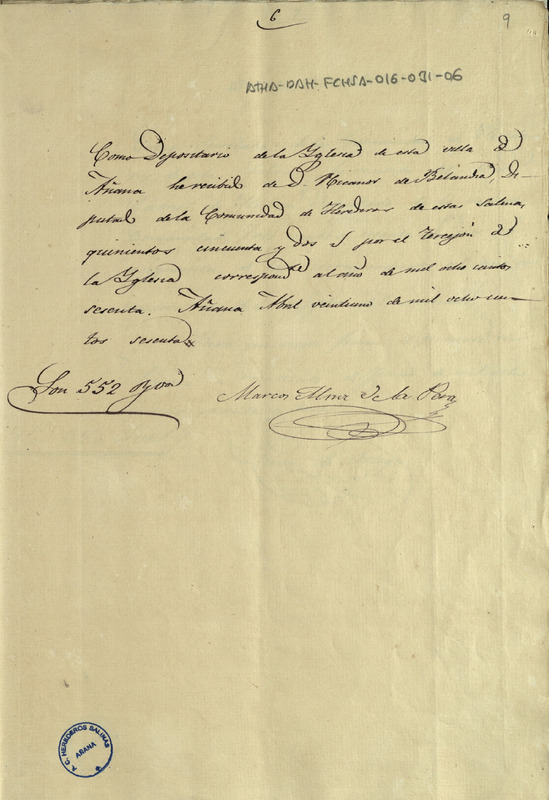 6
9
ATHA-DAH-FCHSA-016-031-06
Como Depositario de la Yglesia de esta villa de
Añana he recibido de D. Nicanor de Belandia, Di-
putado de la Comunidad de Herederos de estas Salinas,
quinientos cincuenta y dos por el Torrejón de
la Yglesia correspond.te al año de mil ocho cientos
sesenta. Añana Abril veintiuno de mil ocho cien-
tos sesenta
Son 552 R.s von
Marcos de la
A. C. HEREDEROS SALINAS
AÑANA